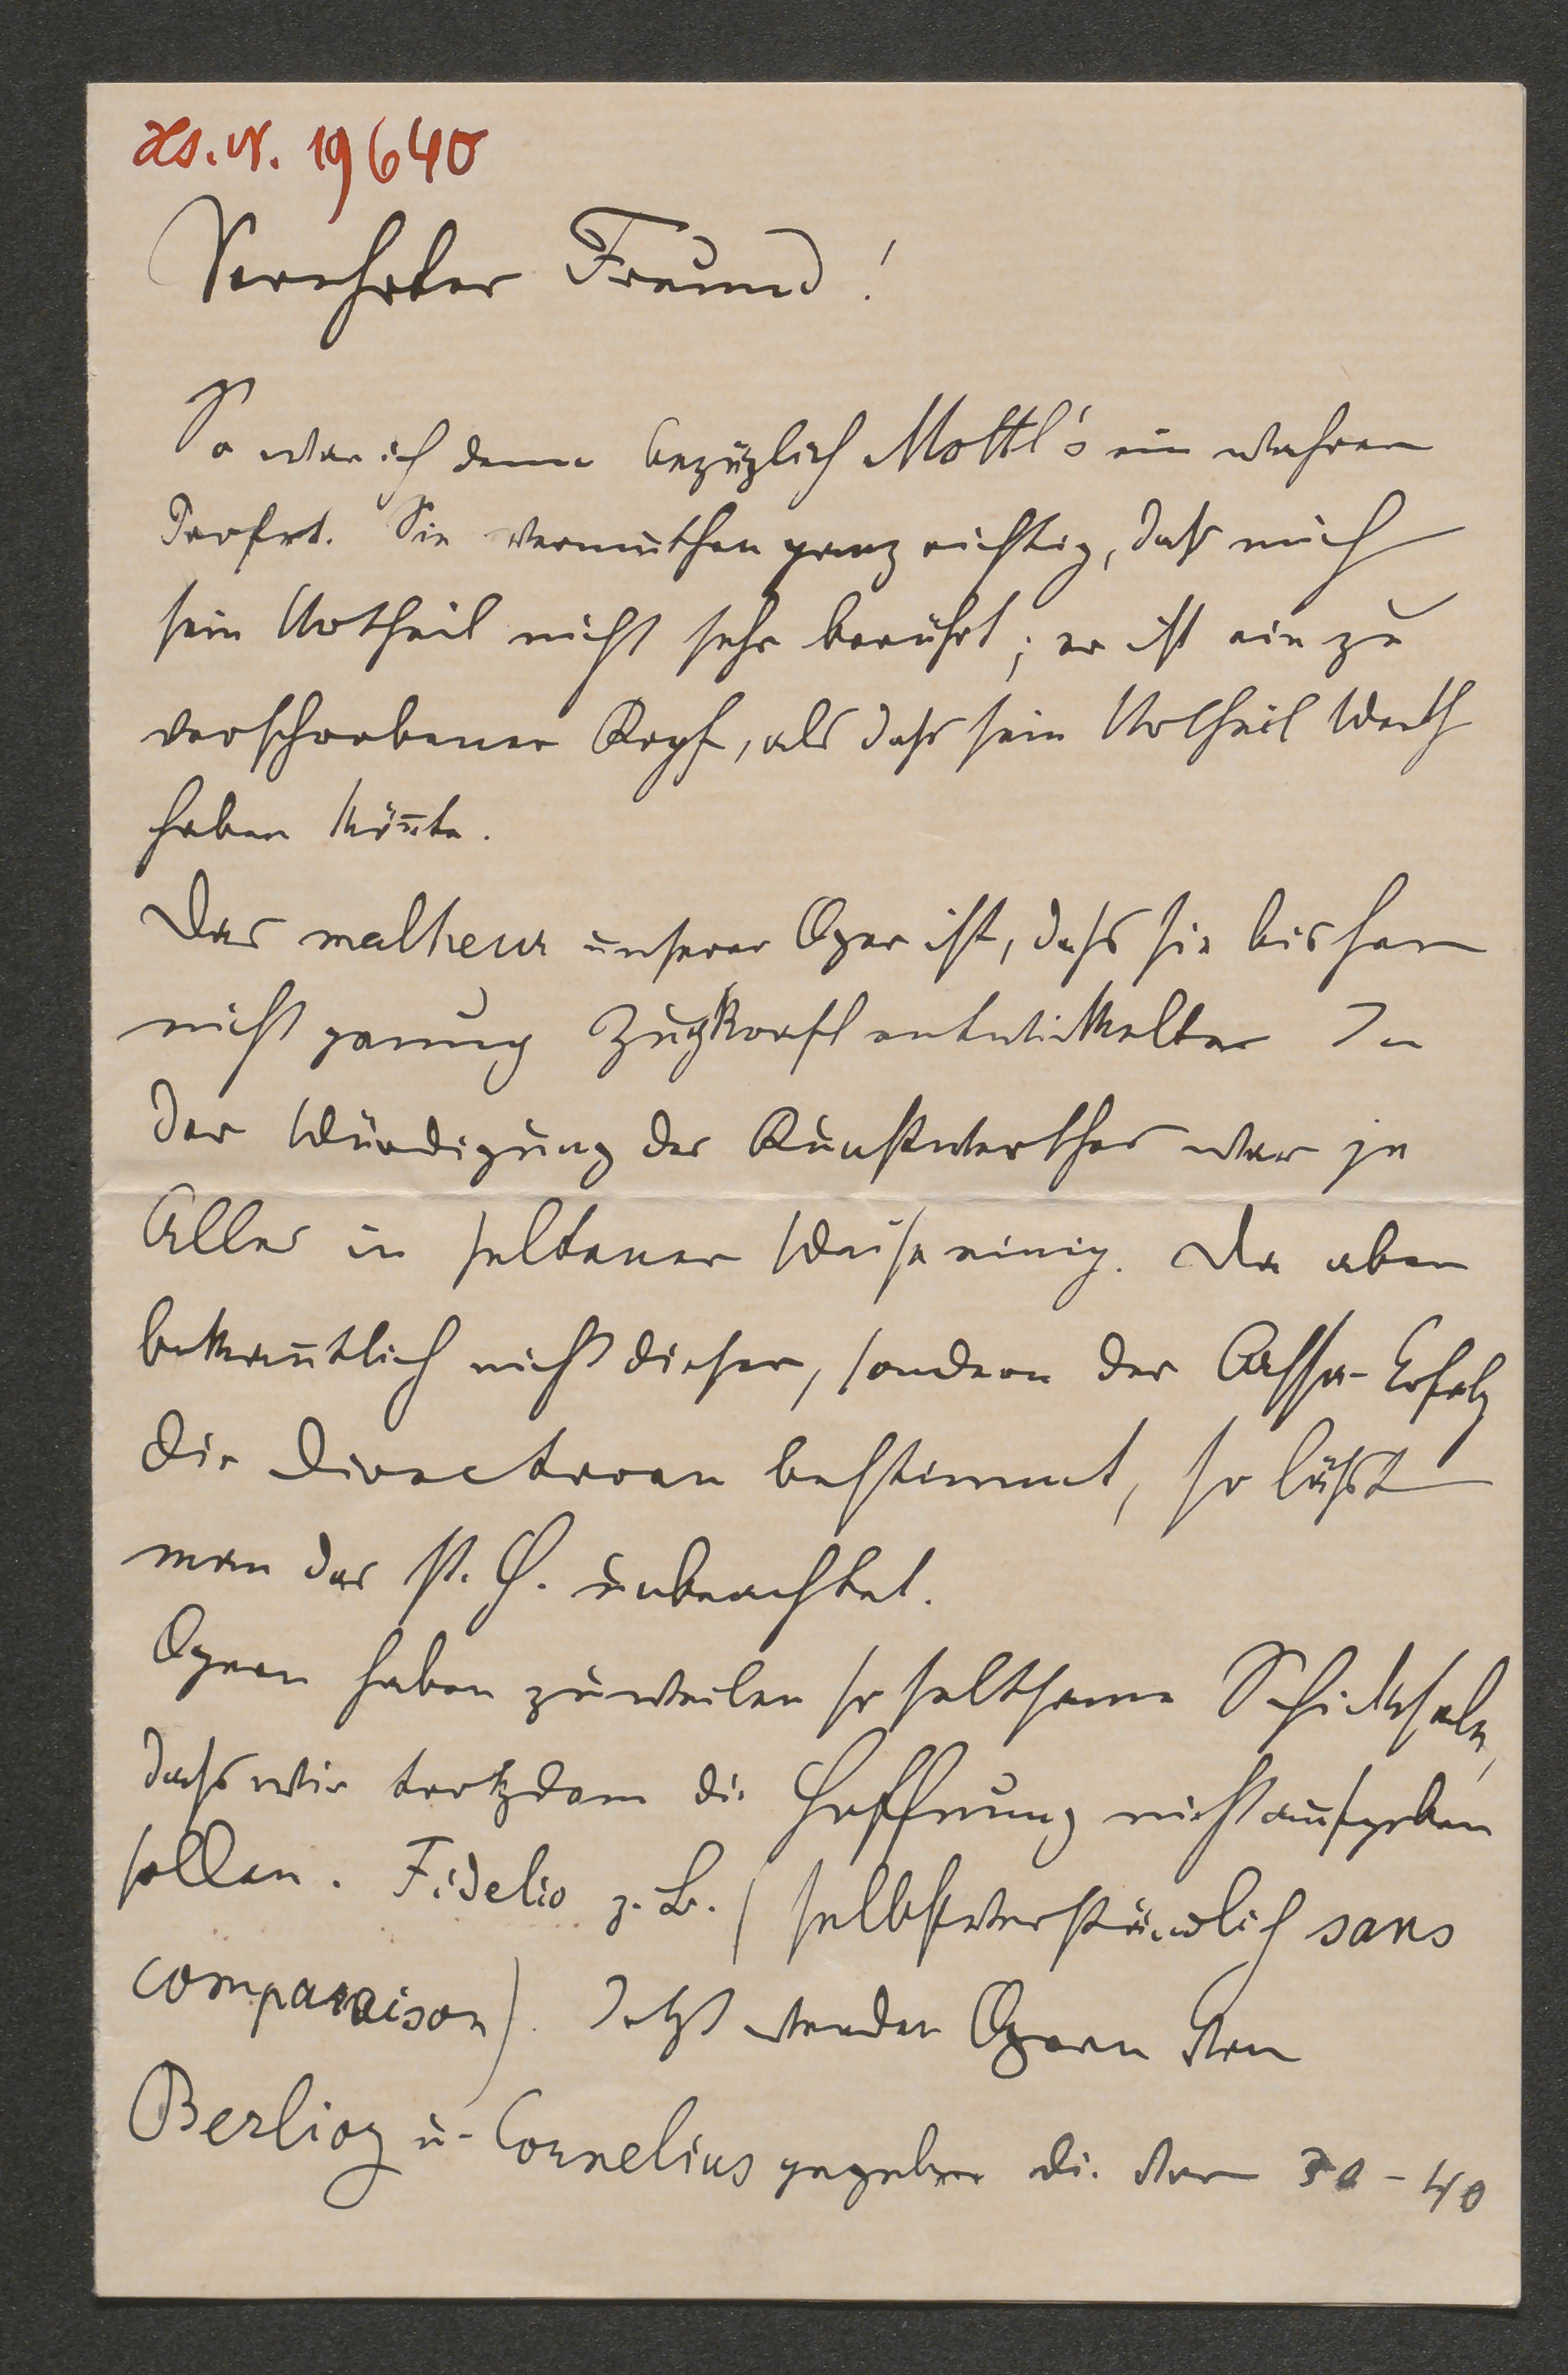 Hs. N. 19640
Verehrter Freund!
So war ich denn bezüglich Mottl's ein wahrer
Profet. Sie vermuthen ganz richtig, daß mich
sein Urtheil nicht sehr berührt; er ist ein zu
verschrobener Kopf, als daß sein Urtheil Werth
haben kön̄te.
Das malheur unserer Oper ist, daß sie bisher
nicht genug Zugkraft entwickelte. In
der Würdigung des Kunstwerthes war ja
Alles in seltener Weise einig. Da aber
bekan̄tlich nicht dieser, sondern der Cassa-Erfolg
die Directoren bestimmt, so läßt
man das st. H. unbeachtet.
Opern haben zuweilen so seltsame Schicksale,
daß wir trotzdem die Hoffnung nicht aufgeben
sollen. Fidelio z. B. (selbstverständlich sans
comparaison). Jetzt werden Opern von
Berlioz u. Cornelius gegeben die vor 30-40